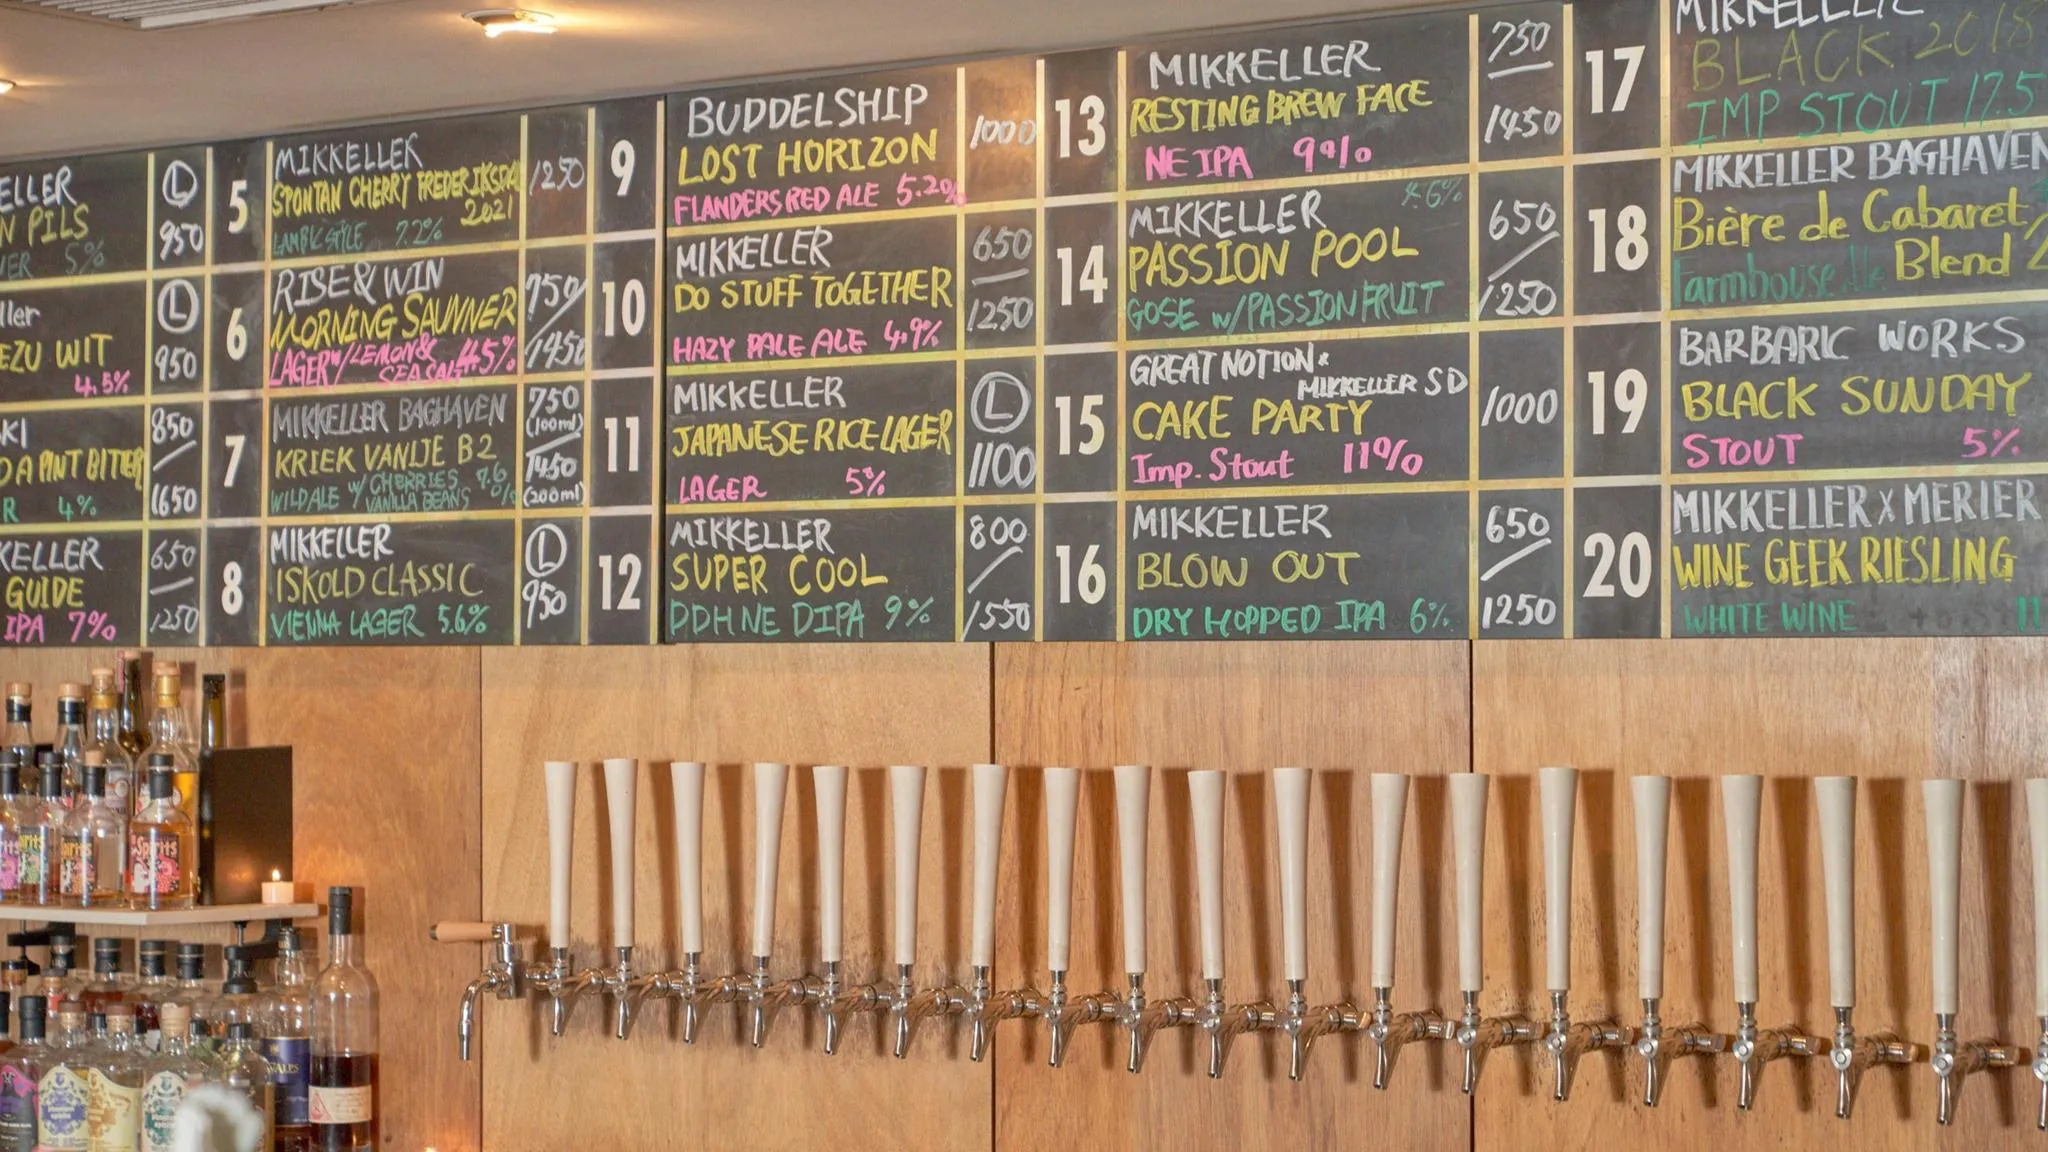 PILS
5%
L
950
WIT
4.5%
L
950
A PINT BITTER
4%
850
1650
GUIDE
IPA 7%
650
1250
5
MIKKELLER
SPONTAN CHERRY FREDERIKSDAL
2021
LAMBIC STYLE 7.2%
1250
6
RISE & WIN
MORNING SAUNNER
LAGER W/LEMON &
SEA SALT 4.5%
750
1450
7
MIKKELLER BAGHAVEN
KRIEK VANLJE B2
WILD ALE W/ CHERRIES 7.6%
VANILLA BEANS
750
(100ml)
1450
(200ml)
8
MIKKELLER
ISKOLD CLASSIC
VIENNA LAGER 5.6%
L
950
9
BUDDELSHIP
LOST HORIZON
FLANDERS RED ALE 5.2%
1000
10
MIKKELLER
DO STUFF TOGETHER
HAZY PALE ALE 4.9%
650
1250
11
MIKKELLER
JAPANESE RICE LAGER
LAGER 5%
L
1100
12
MIKKELLER
SUPER COOL
DDH NE DIPA 9%
800
1550
13
MIKKELLER
RESTING BREW FACE
NE IPA 9%
750
1450
14
MIKKELLER 4.6%
PASSION POOL
GOSE w/PASSIONFRUIT
650
1250
15
GREAT NOTION &
MIKKELLER SD
CAKE PARTY
Imp. Stout 11%
1000
16
MIKKELLER
BLOW OUT
DRY HOPPED IPA 6%
650
1250
17
MIKKELLER
BLACK 2018
IMP STOUT 17.5
18
MIKKELLER BAGHAVEN
Bière de Cabaret
Blend 2
Farmhouse Ale
19
BARBARIC WORKS
BLACK SUNDAY
STOUT 5%
20
MIKKELLER X MERIER
WINE GEEK RIESLING
WHITE WINE 11
Spirits